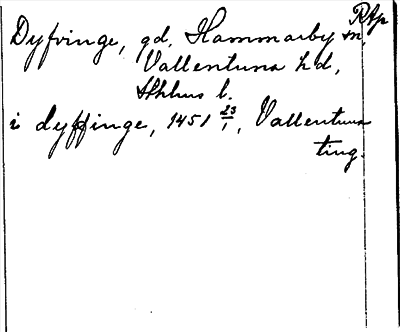 Rtp
Dyfvinge, gd, Hammarby sn,
Vallentuna hd,
Sthlms l.
i dyffinge, 1451 23/1, Vallentuna
ting.